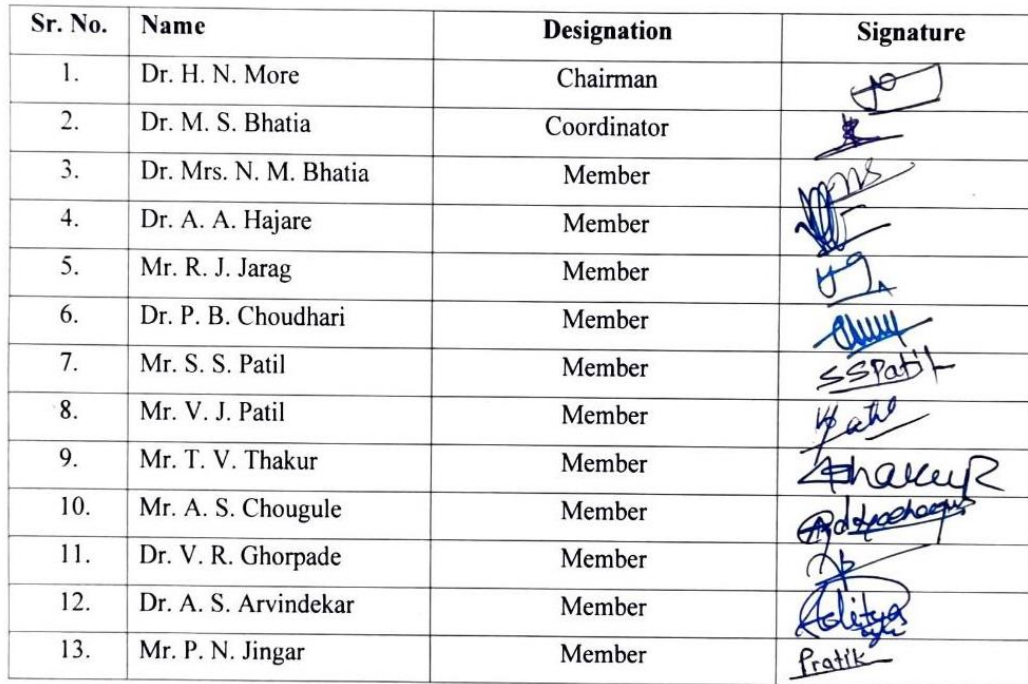 Sr. No. Name Designation Signature
1. Dr. H. N. More Chairman
2. Dr. M. S. Bhatia Coordinator
3. Dr. Mrs. N. M. Bhatia Member
4. Dr. A. A. Hajare Member
5. Mr. R. J. Jarag Member
6. Dr. P. B. Choudhari Member
7. Mr. S. S. Patil Member SSPatil
8. Mr. V. J. Patil Member
9. Mr. T. V. Thakur Member
10. Mr. A. S. Chougule Member
11. Dr. V. R. Ghorpade Member
12. Dr. A. S. Arvindekar Member Aditya
13. Mr. P. N. Jingar Member Pratik